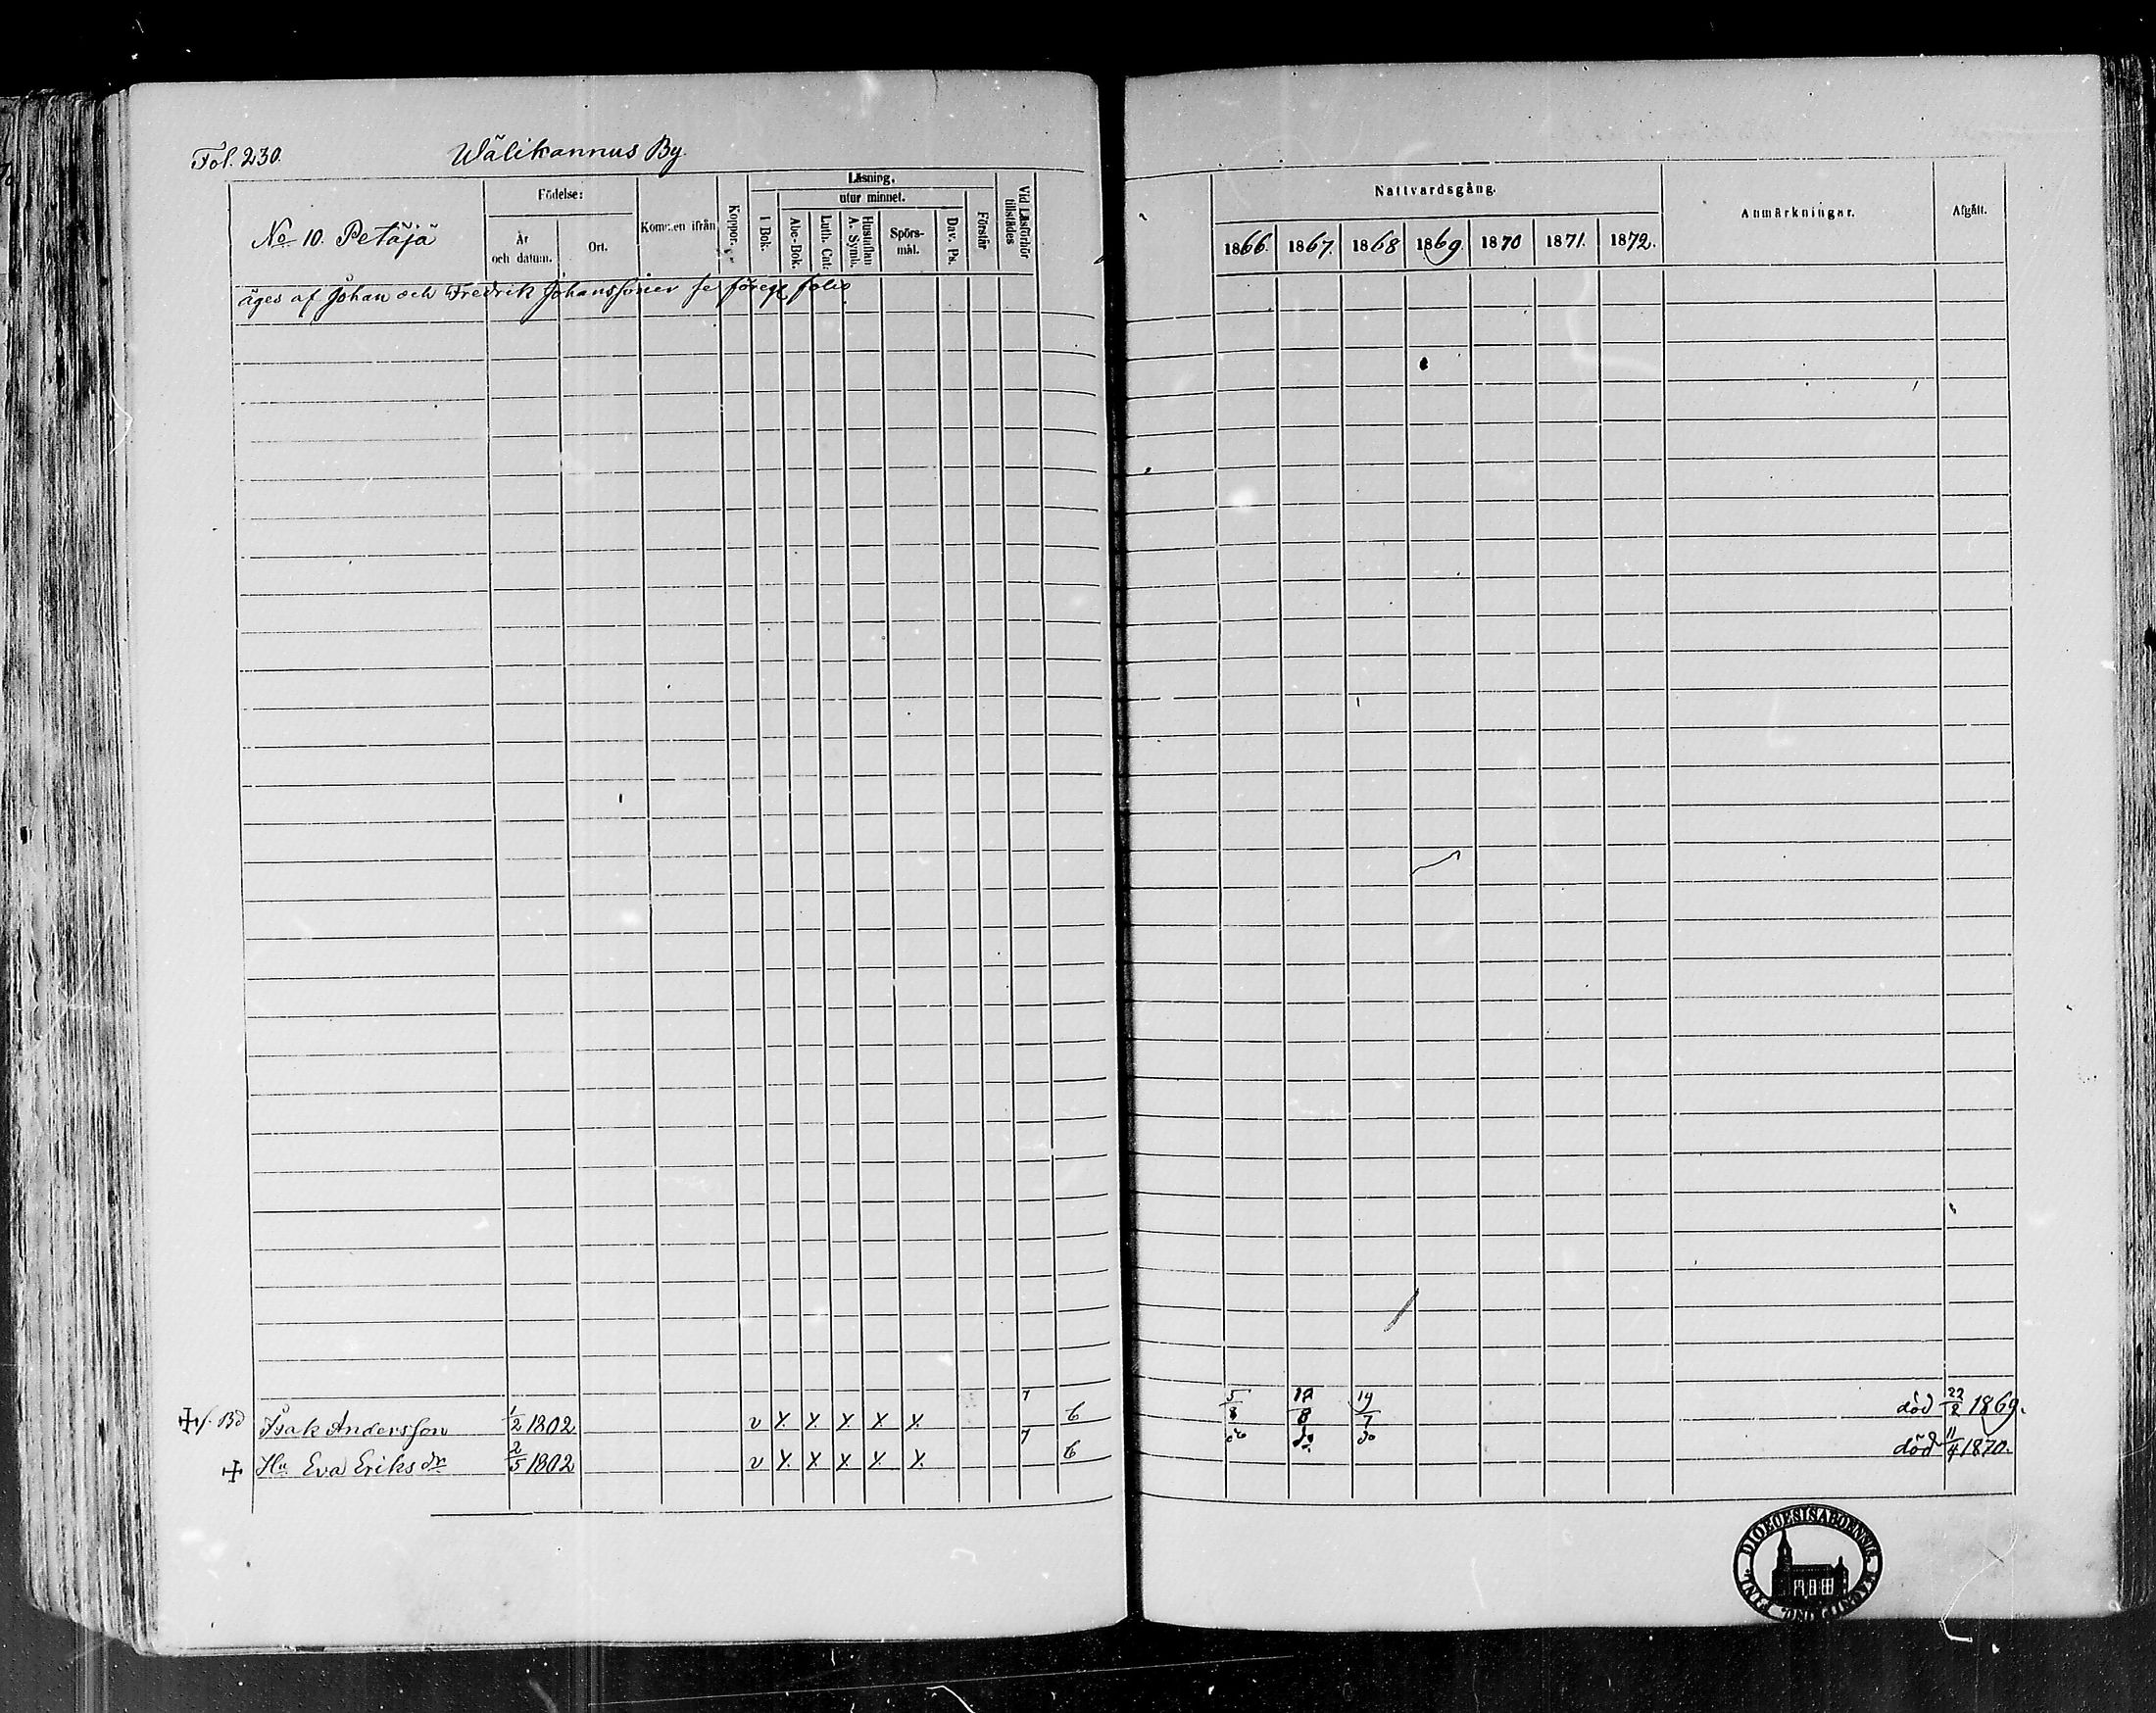 Fol. 230. Wälikannus By.
Nattvardsgång.
Anmärkningar.
Afgått.
No 10. Petäjä
Födelse:
År och datum.
Ort.
Kommen ifrån
Koppor.
Läsning.
I Bok.
utur minnet.
Abc-Bok.
Luth. Cat.
Hustaflan A. Symb.
Spörs-mål.
Dav. Ps.
Förstår
Vid Läsförhör tillstädes
1866. 1867. 1868 1869. 1870 1871. 1872.
äges af Johan och Fredrik Johanssöner se föreg folio
Isak Andersson 1/2 1802 v X X X X X 7 6 5/8 12/8 19/7 död 22/2 1869.
Hu Eva Eriksdr 2/5 1802 v X X X X X 7 6 do do do död 11/4 1870.
DIOECESIS ABOENSIS MAGNI DUC. FINL.